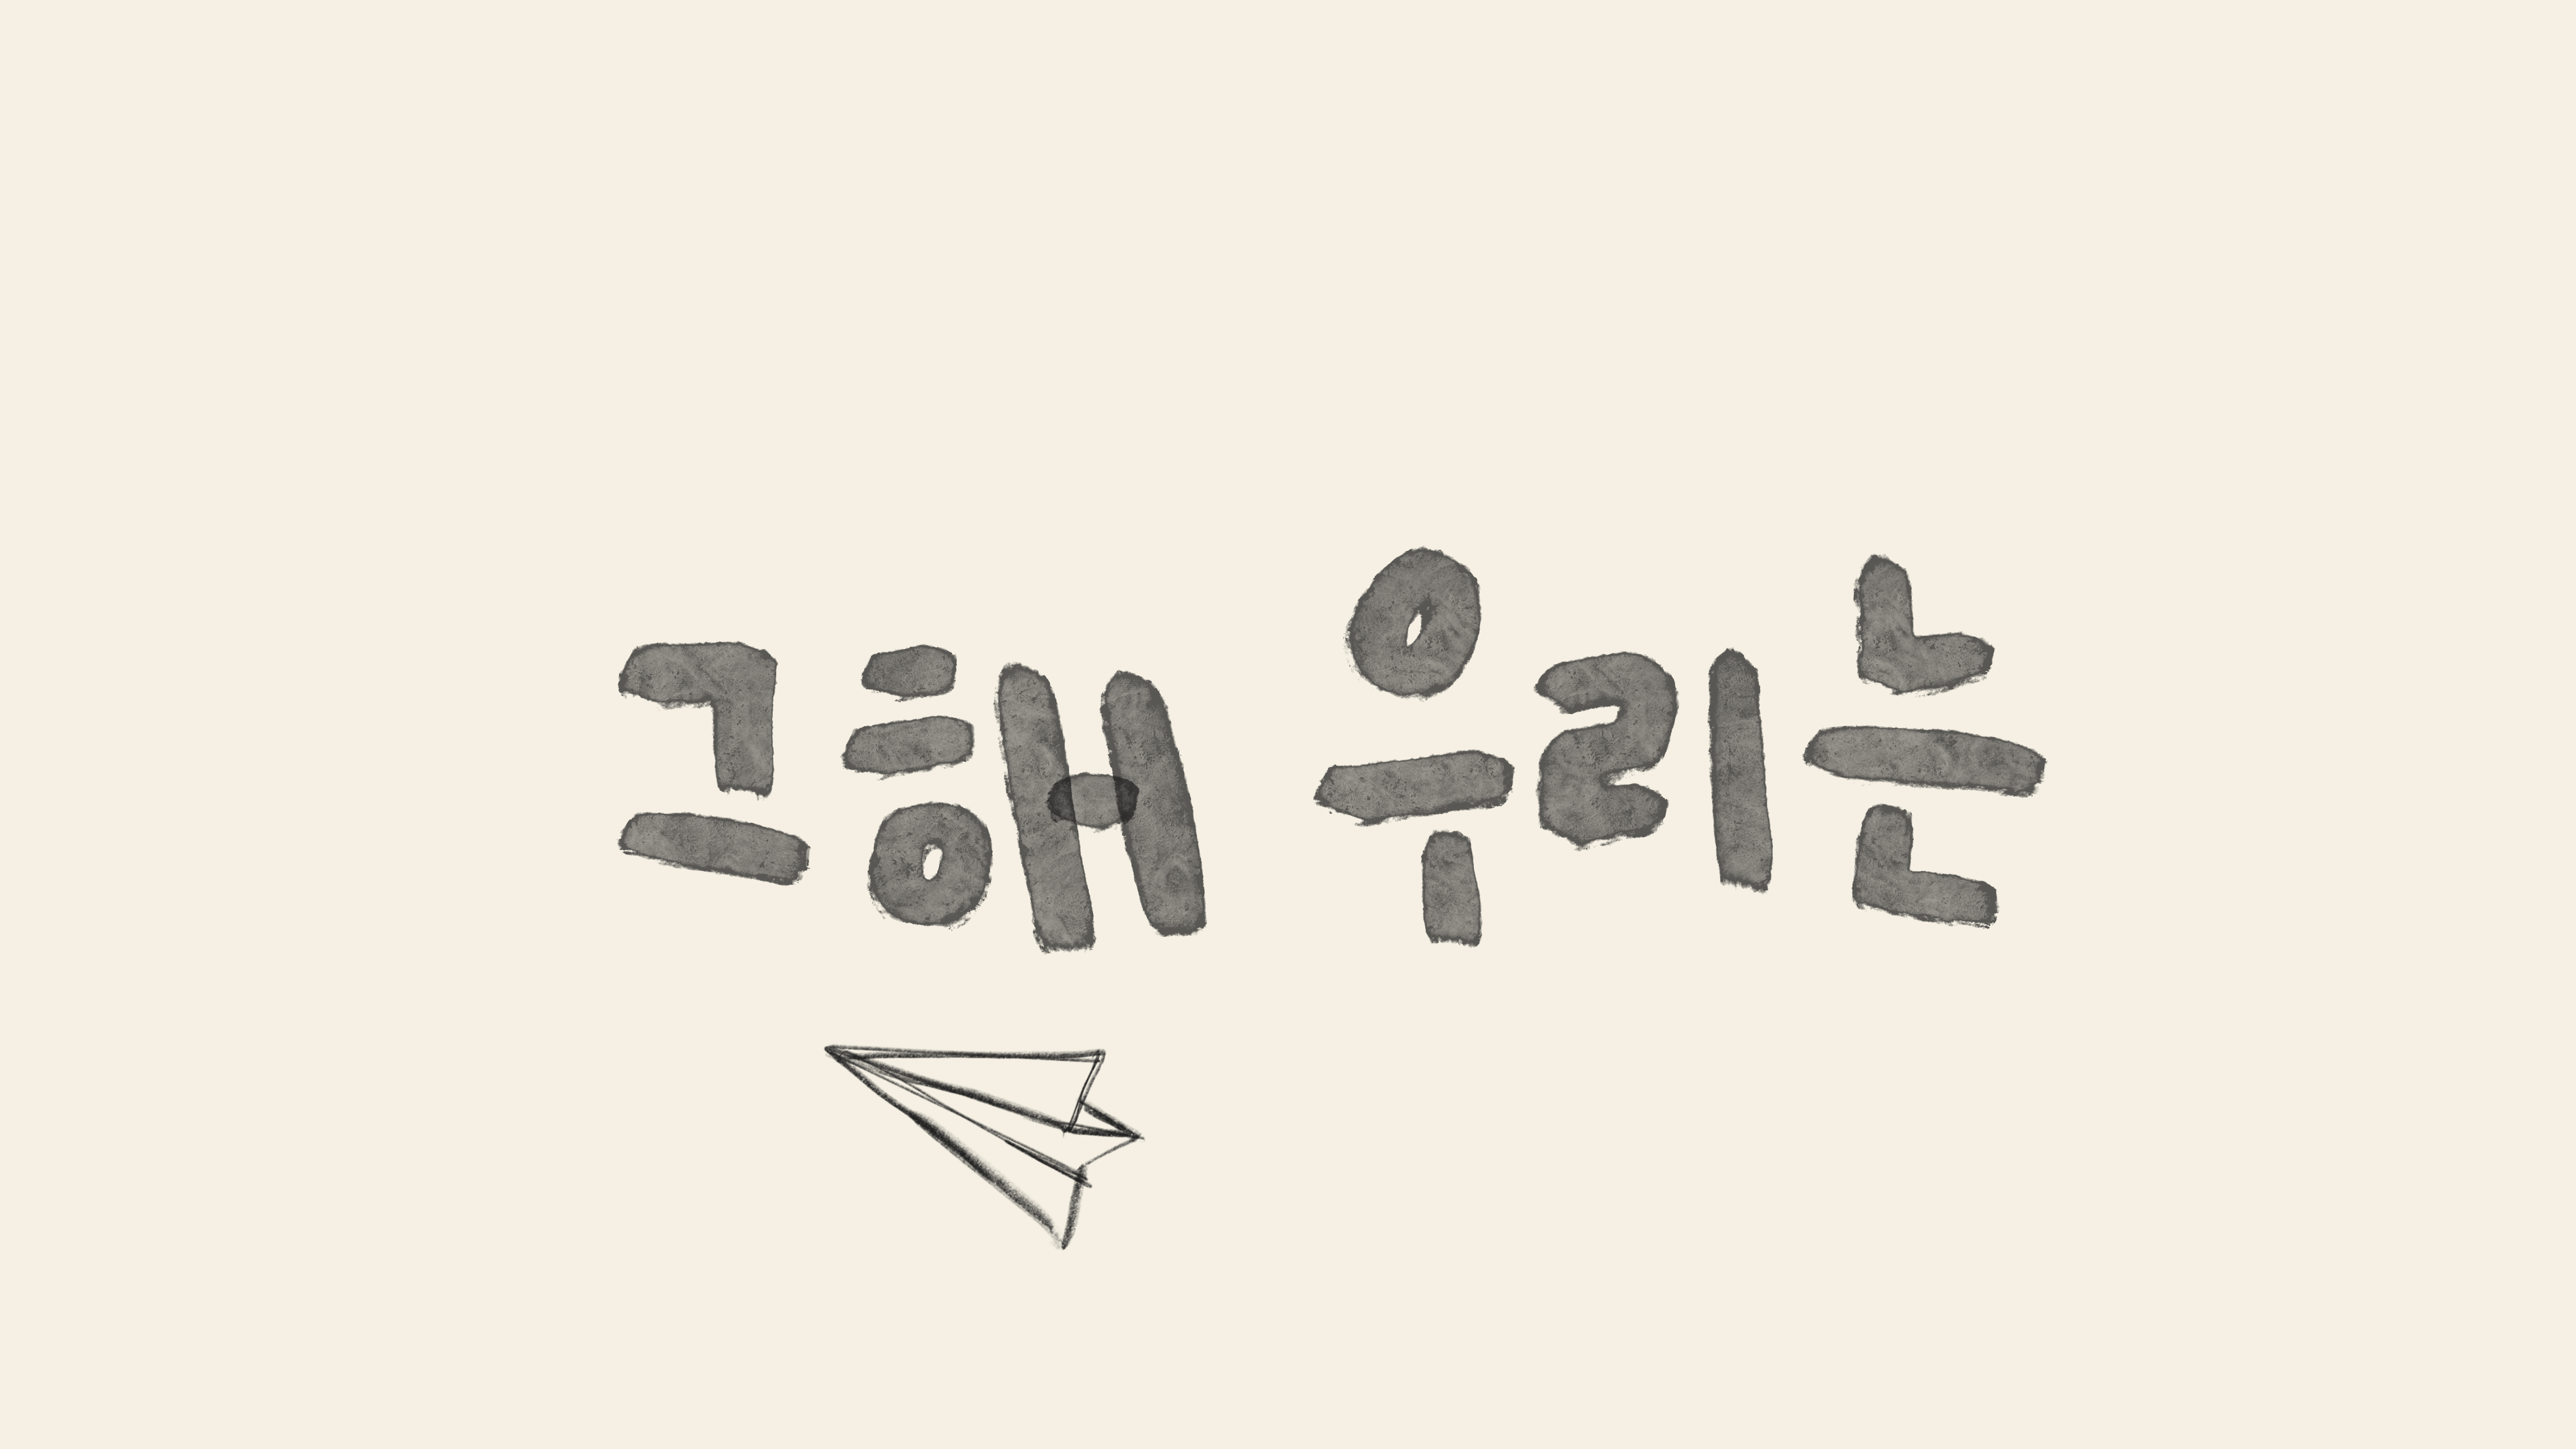 그해 우리는